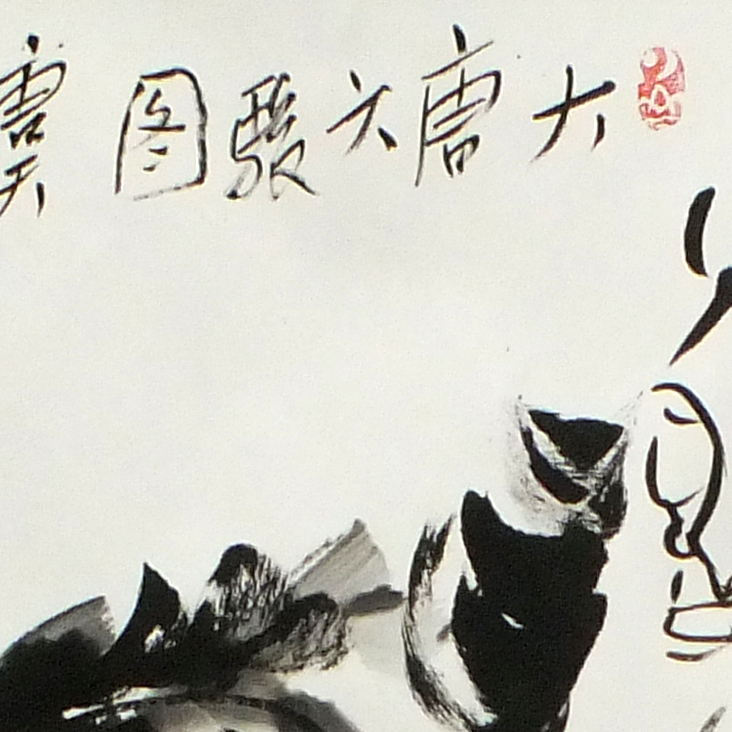 大唐六骏图